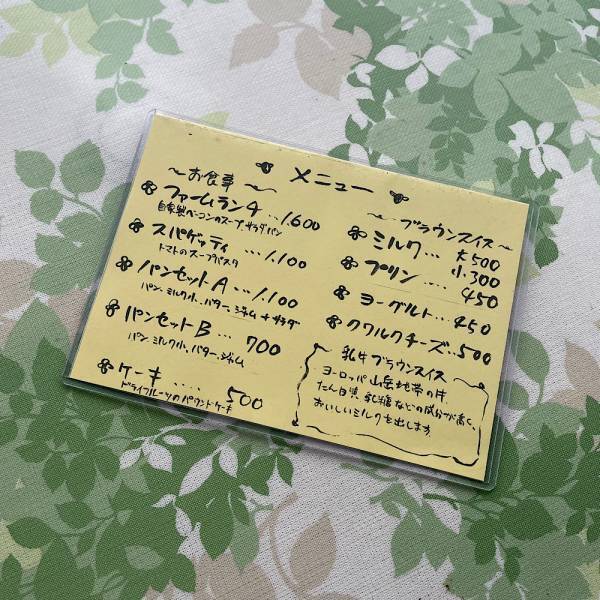 メニュー
〜お食事〜
ファームランチ...1.600
自家製ベーコンのスープ、サラダ、パン
スパゲッティ...1.100
トマトのスープパスタ
パンセットA...1.100
パン、ミルク小、バター、ジャム+サラダ
パンセットB...700
パン、ミルク小、バター、ジャム
ケーキ....500
ドライフルーツのパウンドケーキ
〜ブラウンスイス〜
ミルク...大500
小300
プリン....450
ヨーグルト...450
クワルクチーズ.500
乳牛ブラウンスイス
ヨーロッパ山岳地帯の牛
たん白質、乳糖などの成分が高く、
おいしいミルクを出します。